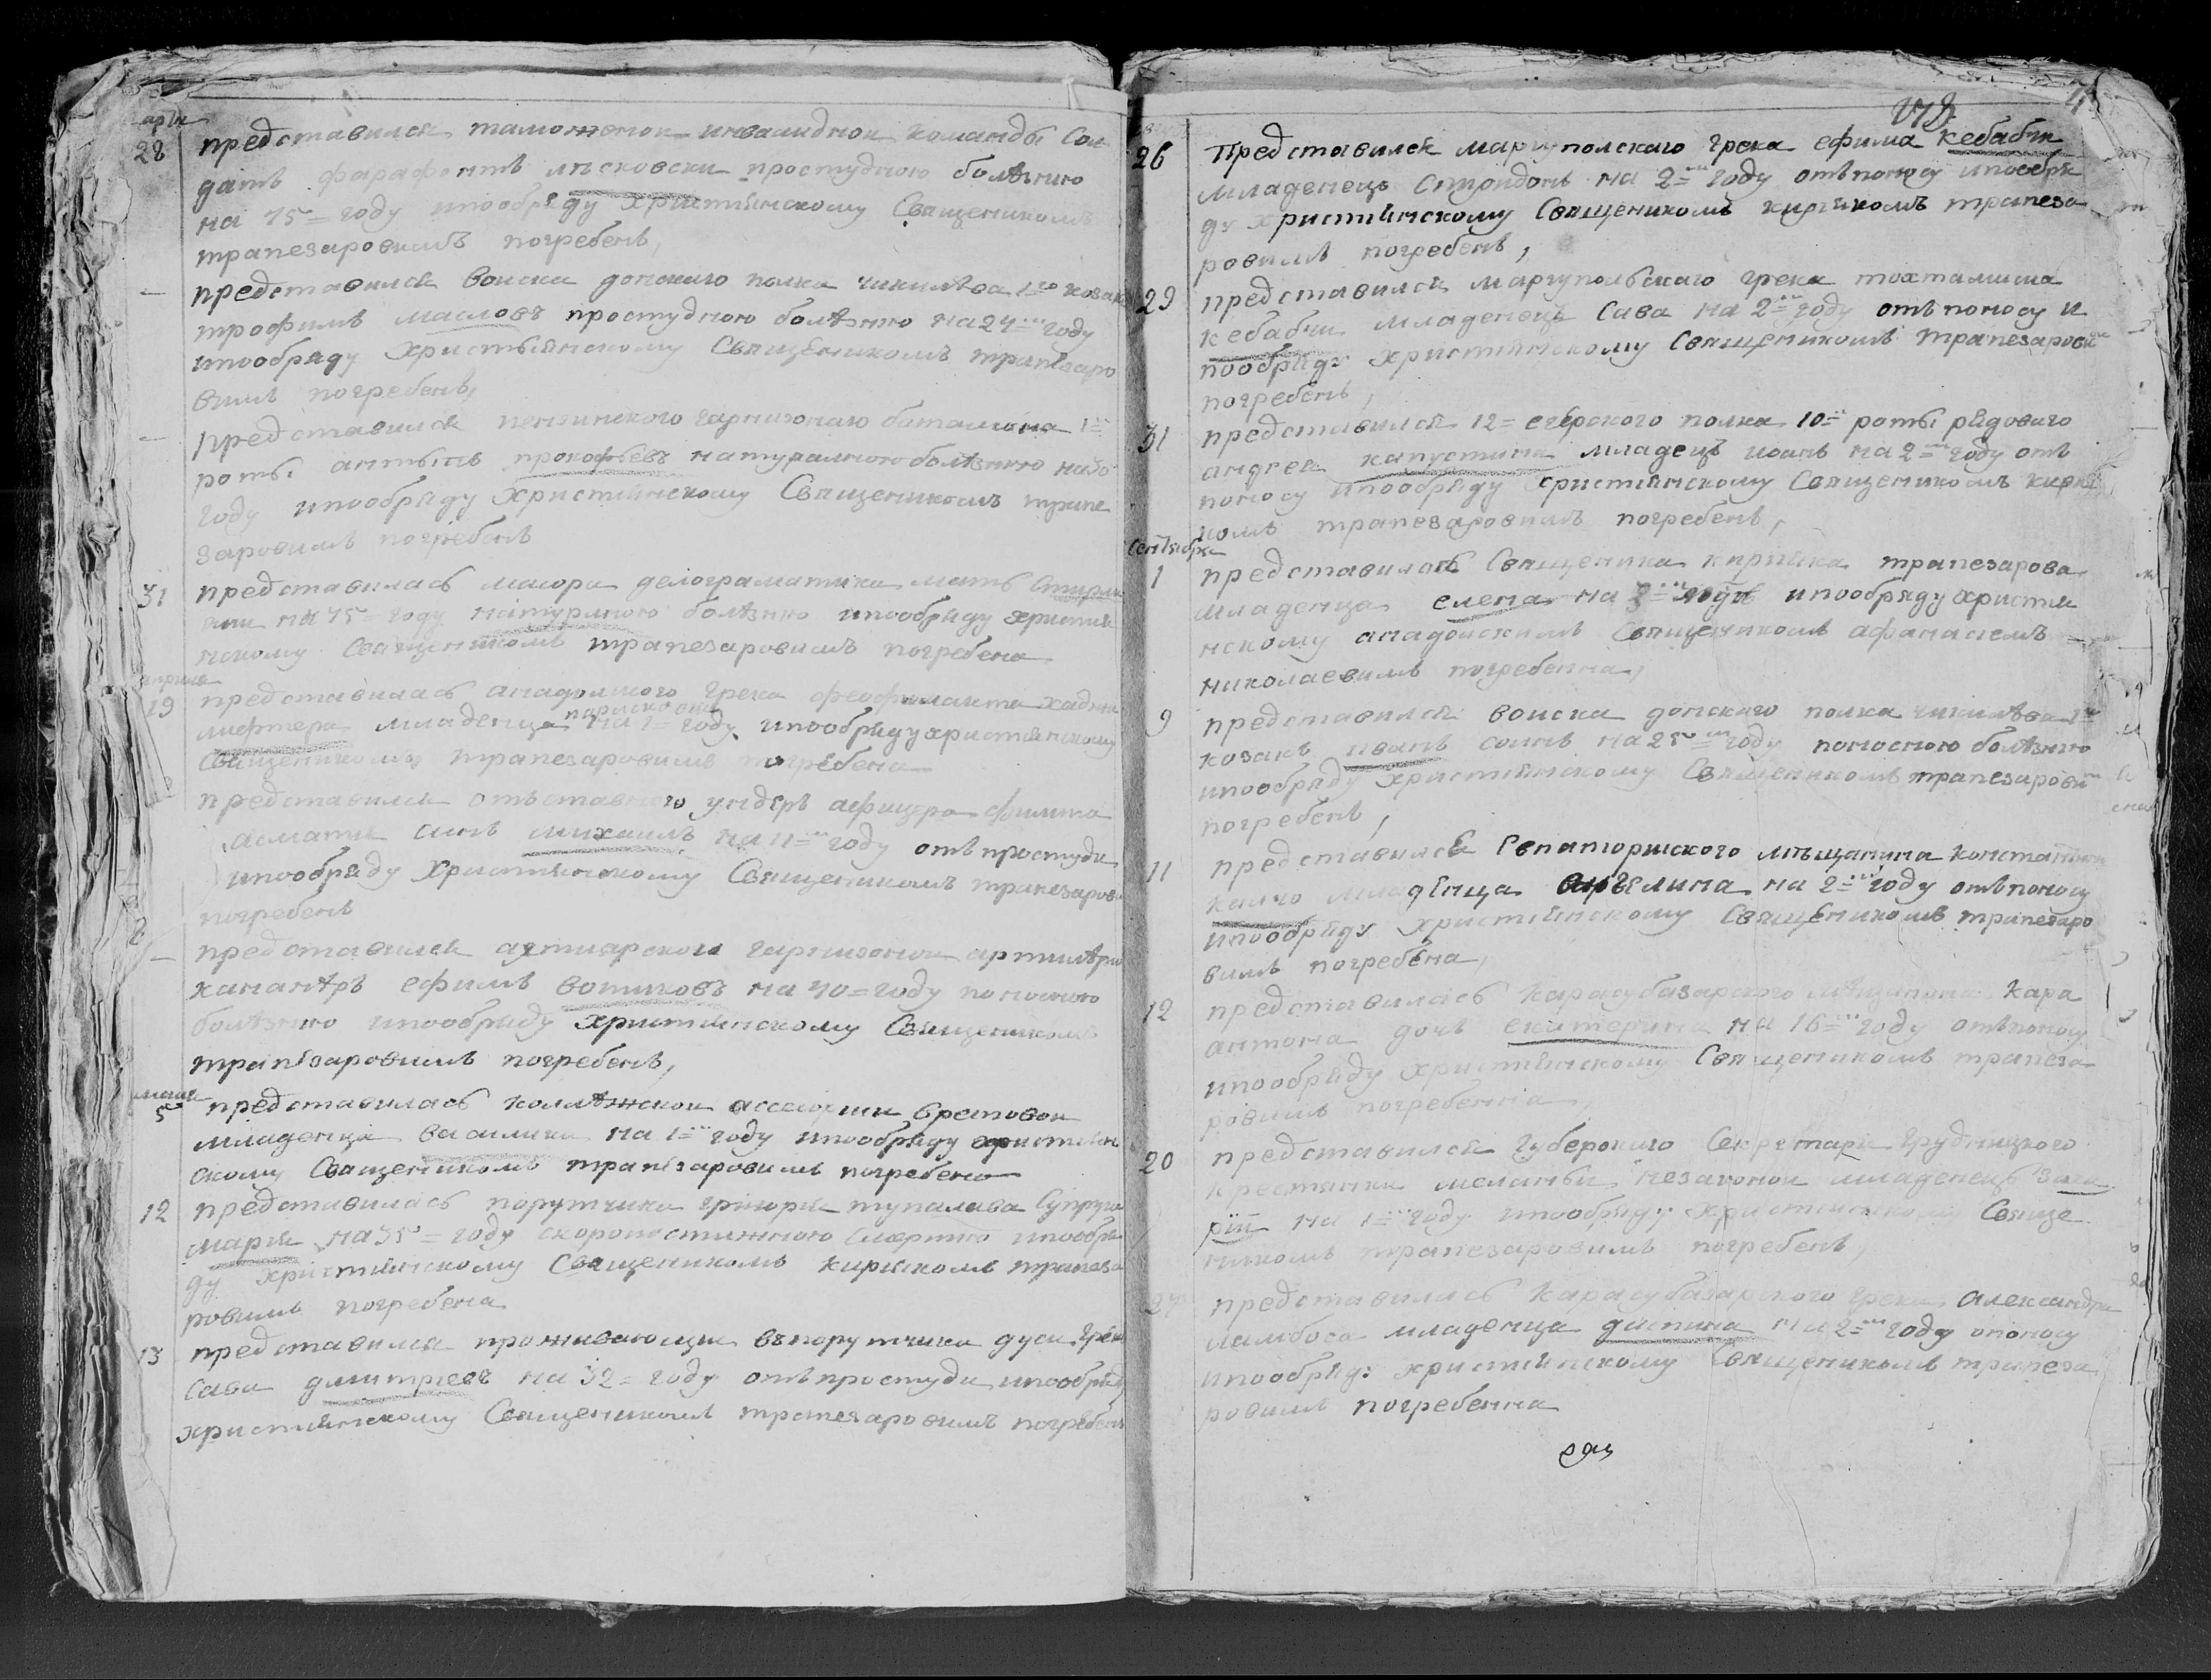 марта
28 представился таможенои инвалиднои команды Сол
датъ фарафонтъ лисковски простудною болѣзнию
на 75 = году ипообряду християнскому Священикомъ
трапезаровимъ погребенъ,
— представился воиска донскаго полка чикилѣва 1го козак
трофимъ масловъ простудною болѣзнию на 24 = году
ипообряду христьянскому Священикомъ трапезаро
вимъ погребенъ,
— представился пензинского гарнизонаго баталиона 1=
роты антыпъ прокофьевъ натуралною болѣзнию на 30
году ипообряду Християнскому Священикомъ трапе
заровимъ погребенъ
31 представилась маиора делограматика мать
на 75 = году натурлною болѣзнию ипообряду христия
нскому Священикомъ трапезаровимъ погребена
априля
19 представилась анадолского грека феофилакта хаджи
лефтера младенца парасковия на 1 = году ипообряду християнскому
Священикомъ трапезаровимъ погребена
представился отъставного ундеръ афицера филипа
асматия синъ михаилъ на 11 = году отъ простуди
ипообряду Християнскому Священикомъ трапезаров
погребенъ
— представился ахтиарского гарнизонои артилѣри
кананѣръ ефимъ вотиковъ на 40 = году поносною
болѣзнию ипообряду християнскому Священикомъ
трапезаровимъ погребенъ,
маия
5 представилась колѣжскои ассесорши бретовои
младенца василики на 1 = году ипообряду християн
скому Священикомъ трапезаровимъ погребена
12 представилась порутчика григория тупалова Супруга
мария на 35 = году скоропостижною Смертию ипообря
ду християнскому Священикомъ кирияком трапеза
ровимъ погребена
13 представился проживающи въпорутчика дуси грек
Сава димитриевъ на 32 = году отъ простуди ипообряд
християнскому Священикомъ трапезаровимъ погребенъ
26 Представился мариуполскаго грека ефима кебабчи
младенецъ Спиридонъ на 2 = году отъ поносу ипообря
ду християнскому Священикомъ кириякомъ трапеза
ровимъ погребенъ,
29 представился мариупольскаго грека тохтамиша
кебабчи младенецъ Сава на 2 = году отъ поносу и
пообряду християнскому Священикомъ трапезарови
погребенъ,
31 представился 12 = егерского полка 10 = роты рядоваго
андрея капустина младецъ иоанъ на 2 = году отъ
поносу ипообряду християнскому Священикомъ кирия
комъ трапезаровимъ погребенъ,
Сентября
1 представилась Священика кирияка трапезарова
младенца елена на 3 = годи ипообряду христия
нскому анадолскимъ Священикомъ афанасиемъ
николаевимъ погребенна,
9 представился воиска донскаго полка чикилѣва 1го
козакъ иванъ соинъ на 25 = году поносною болѣзнию
ипообряду християнскому Священикомъ трапезарови
погребенъ,
11 представился Евпаторискаго мѣщанина константина
калчо младенца ангелина на 2 = году отъ поносу
ипообряду християнскому Священикомъ трапезаро
вимъ погребена,
12 представилась карасубазарского мѣщанина кара
антона дочь екатерина на 16 = году отъ поносу
ипообряду християнскому Священикомъ трапеза
ровимъ погребенна,
20 представился губерского Секретаря грудницкого
крестянки меланьи незаконои младенецъ Заха
рiй на 1 = году ипообряду християнскому Свяще
никомъ трапезаровимъ погребенъ,
27 представилась карасубазарского грека александра
ламбоса младенца диспина на 2 = году опоносу
ипообряду християнскому Священикомъ трапеза
ровимъ погребенна